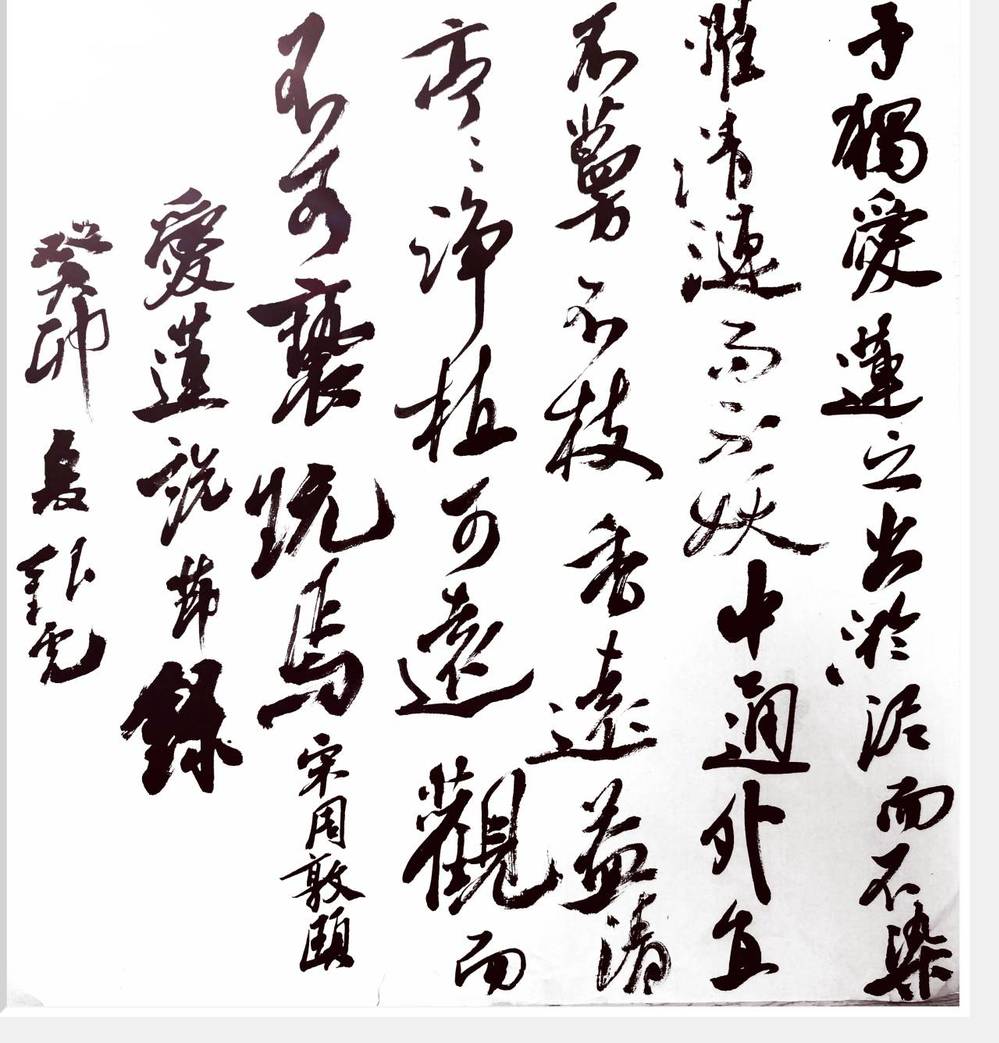 予獨愛蓮之出淤泥而不染
濯清漣而不妖中通外直
不蔓不枝香遠益清
亭〻淨植可遠觀而
不可褻玩焉宋周敦頤
愛蓮說節錄
癸卯夏